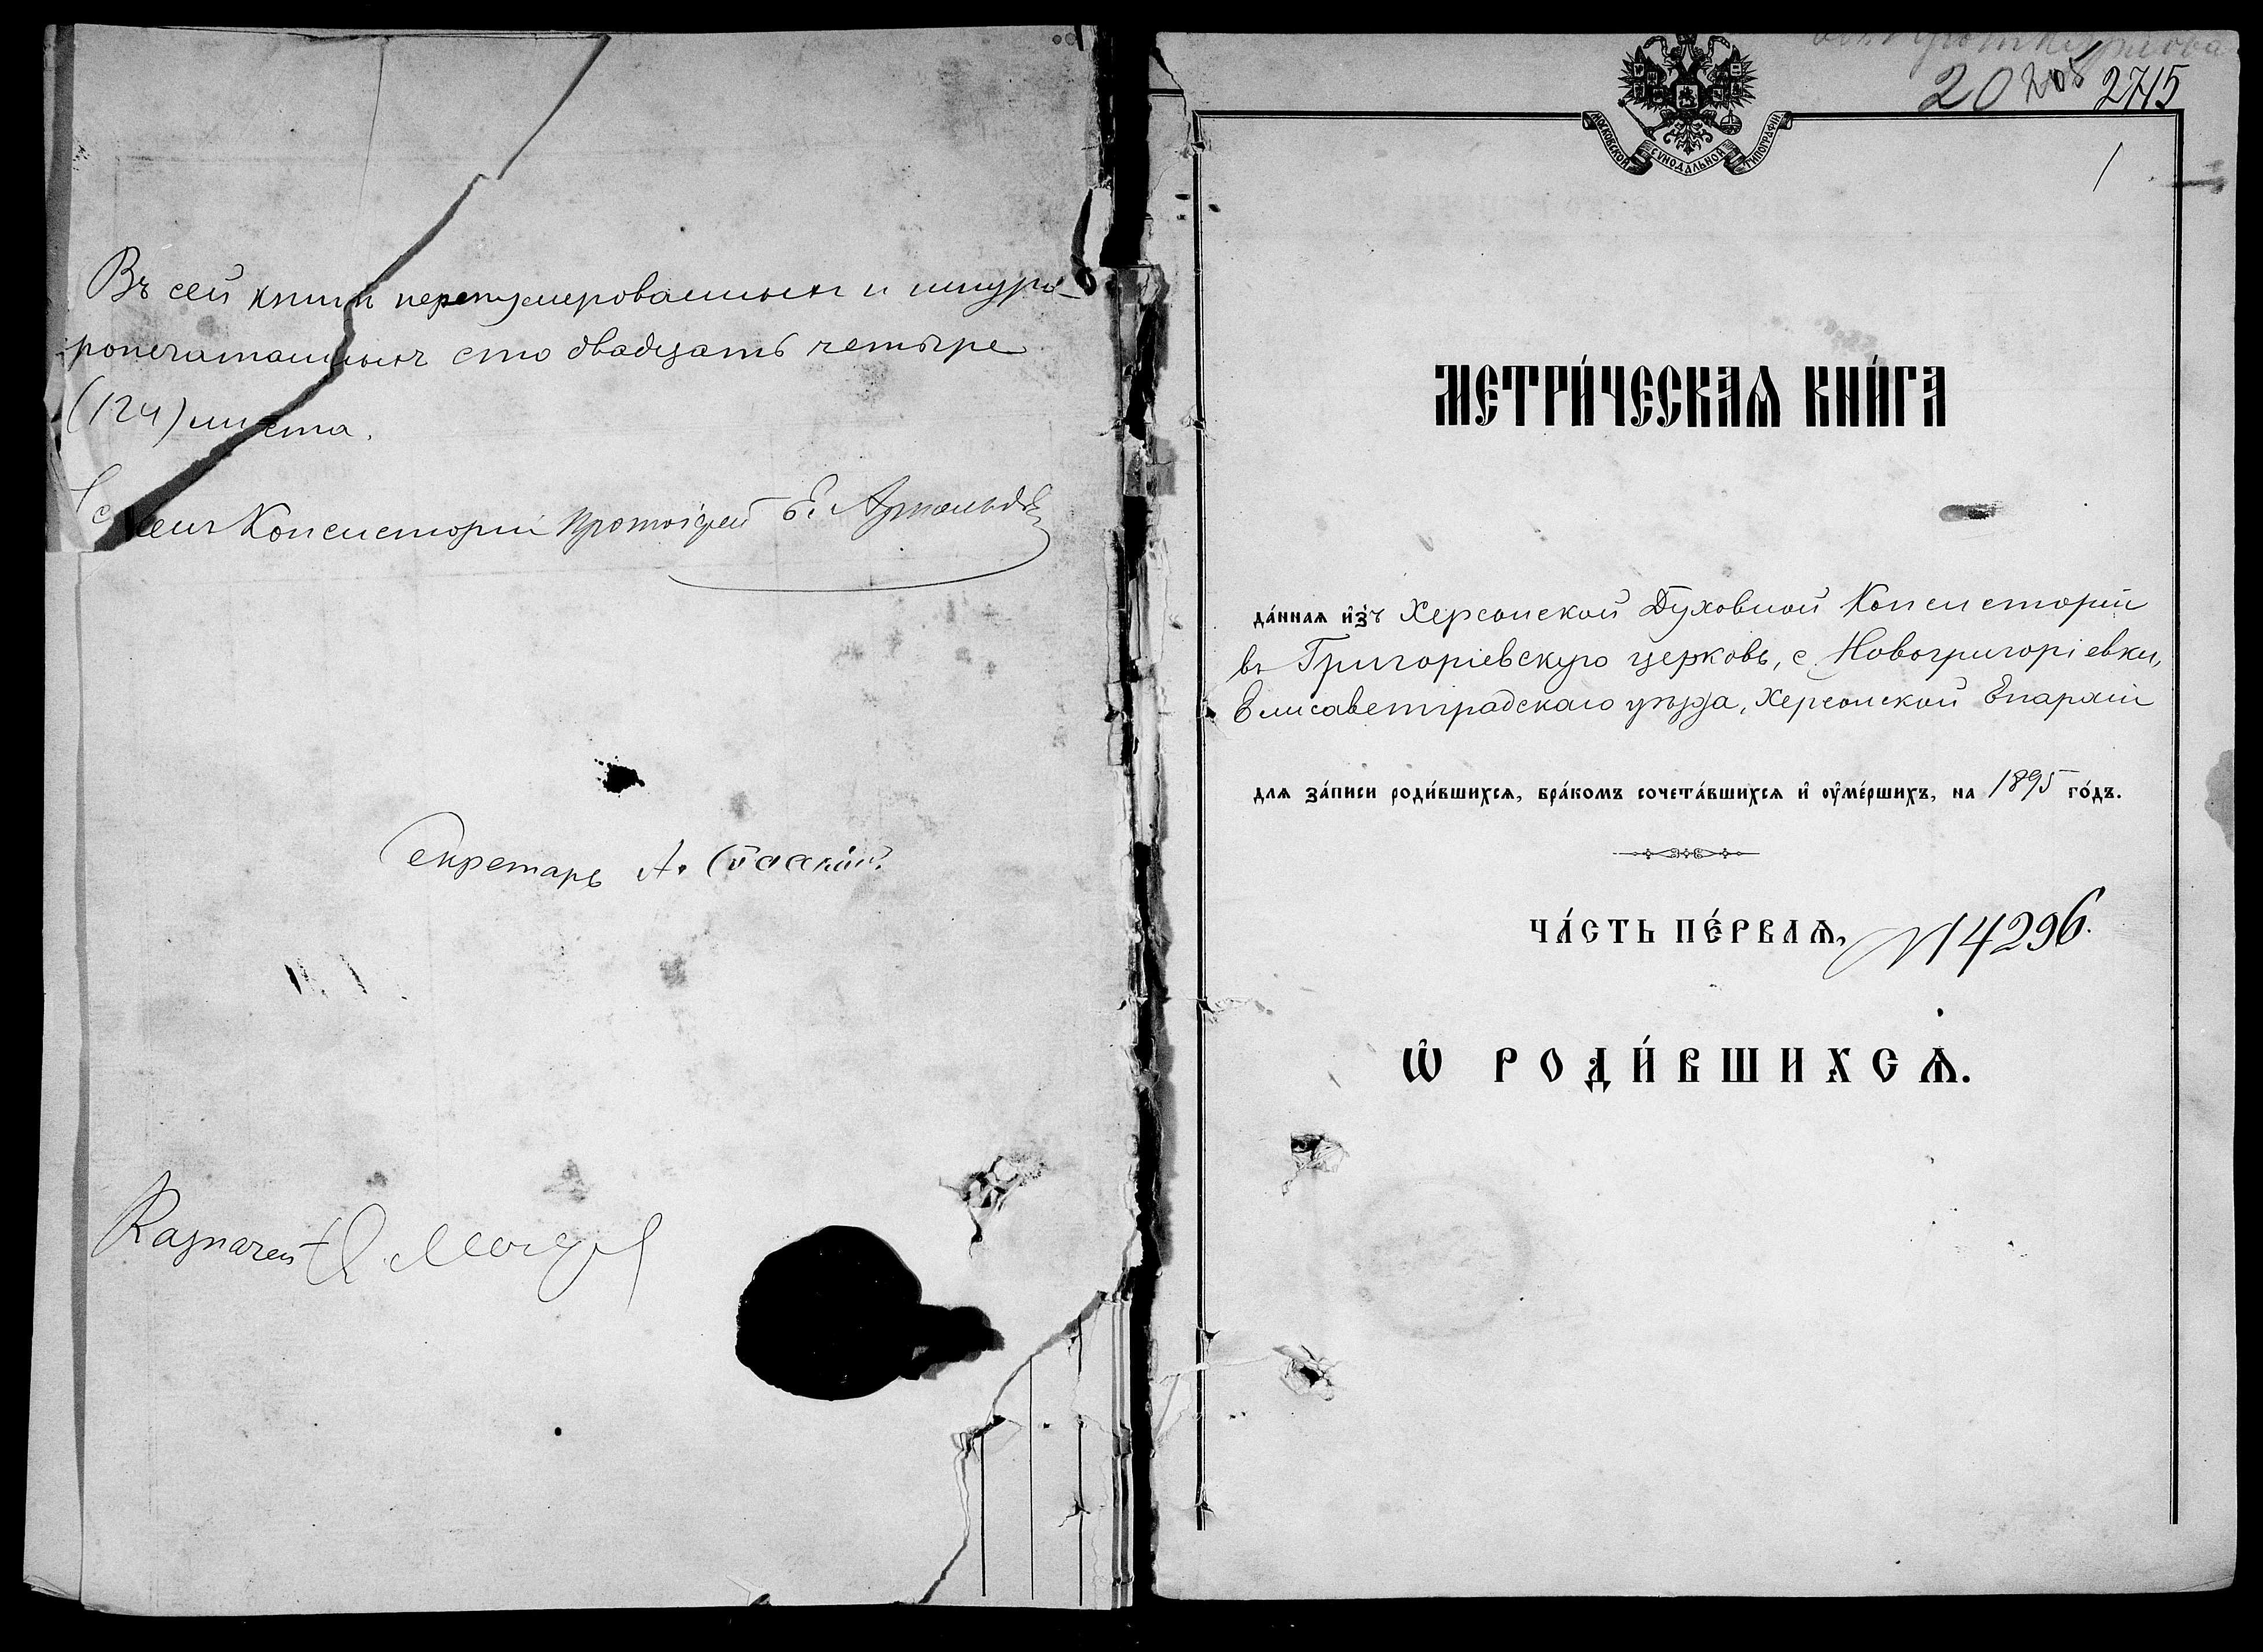 Въ сей книгѣ перенумерованныхъ и шнуро-
ропечатанныхъ сто двадцать четыре
(124) листа.
Членъ Консисторіи Протоіерей Е. Арнольдъ
Секретарь А.
Казначей
20 2715
1
МОСКОВСКОЙ СѴНОДАЛЬНОЙ ТИПОГРАФІИ
МЕТРИ́ЧЕСКАѦ КНИ́ГА
да́ннаѧ и҆зъ Херсонской Духовной Консисторіи
въ Григоріевскую церковь, с. Новогригоріевки,
Елисаветградскаго уѣзда, Херсонской Епархіи
длѧ за́писи роди́вшихсѧ, бра́комъ сочета́вшихсѧ и҆ ᲂу҆ме́ршихъ, на 1895 го́дъ.
ЧА́СТЬ ПЕ́РВАѦ, № 14296.
Ѡ҆ РОДИ́ВШИХСѦ.